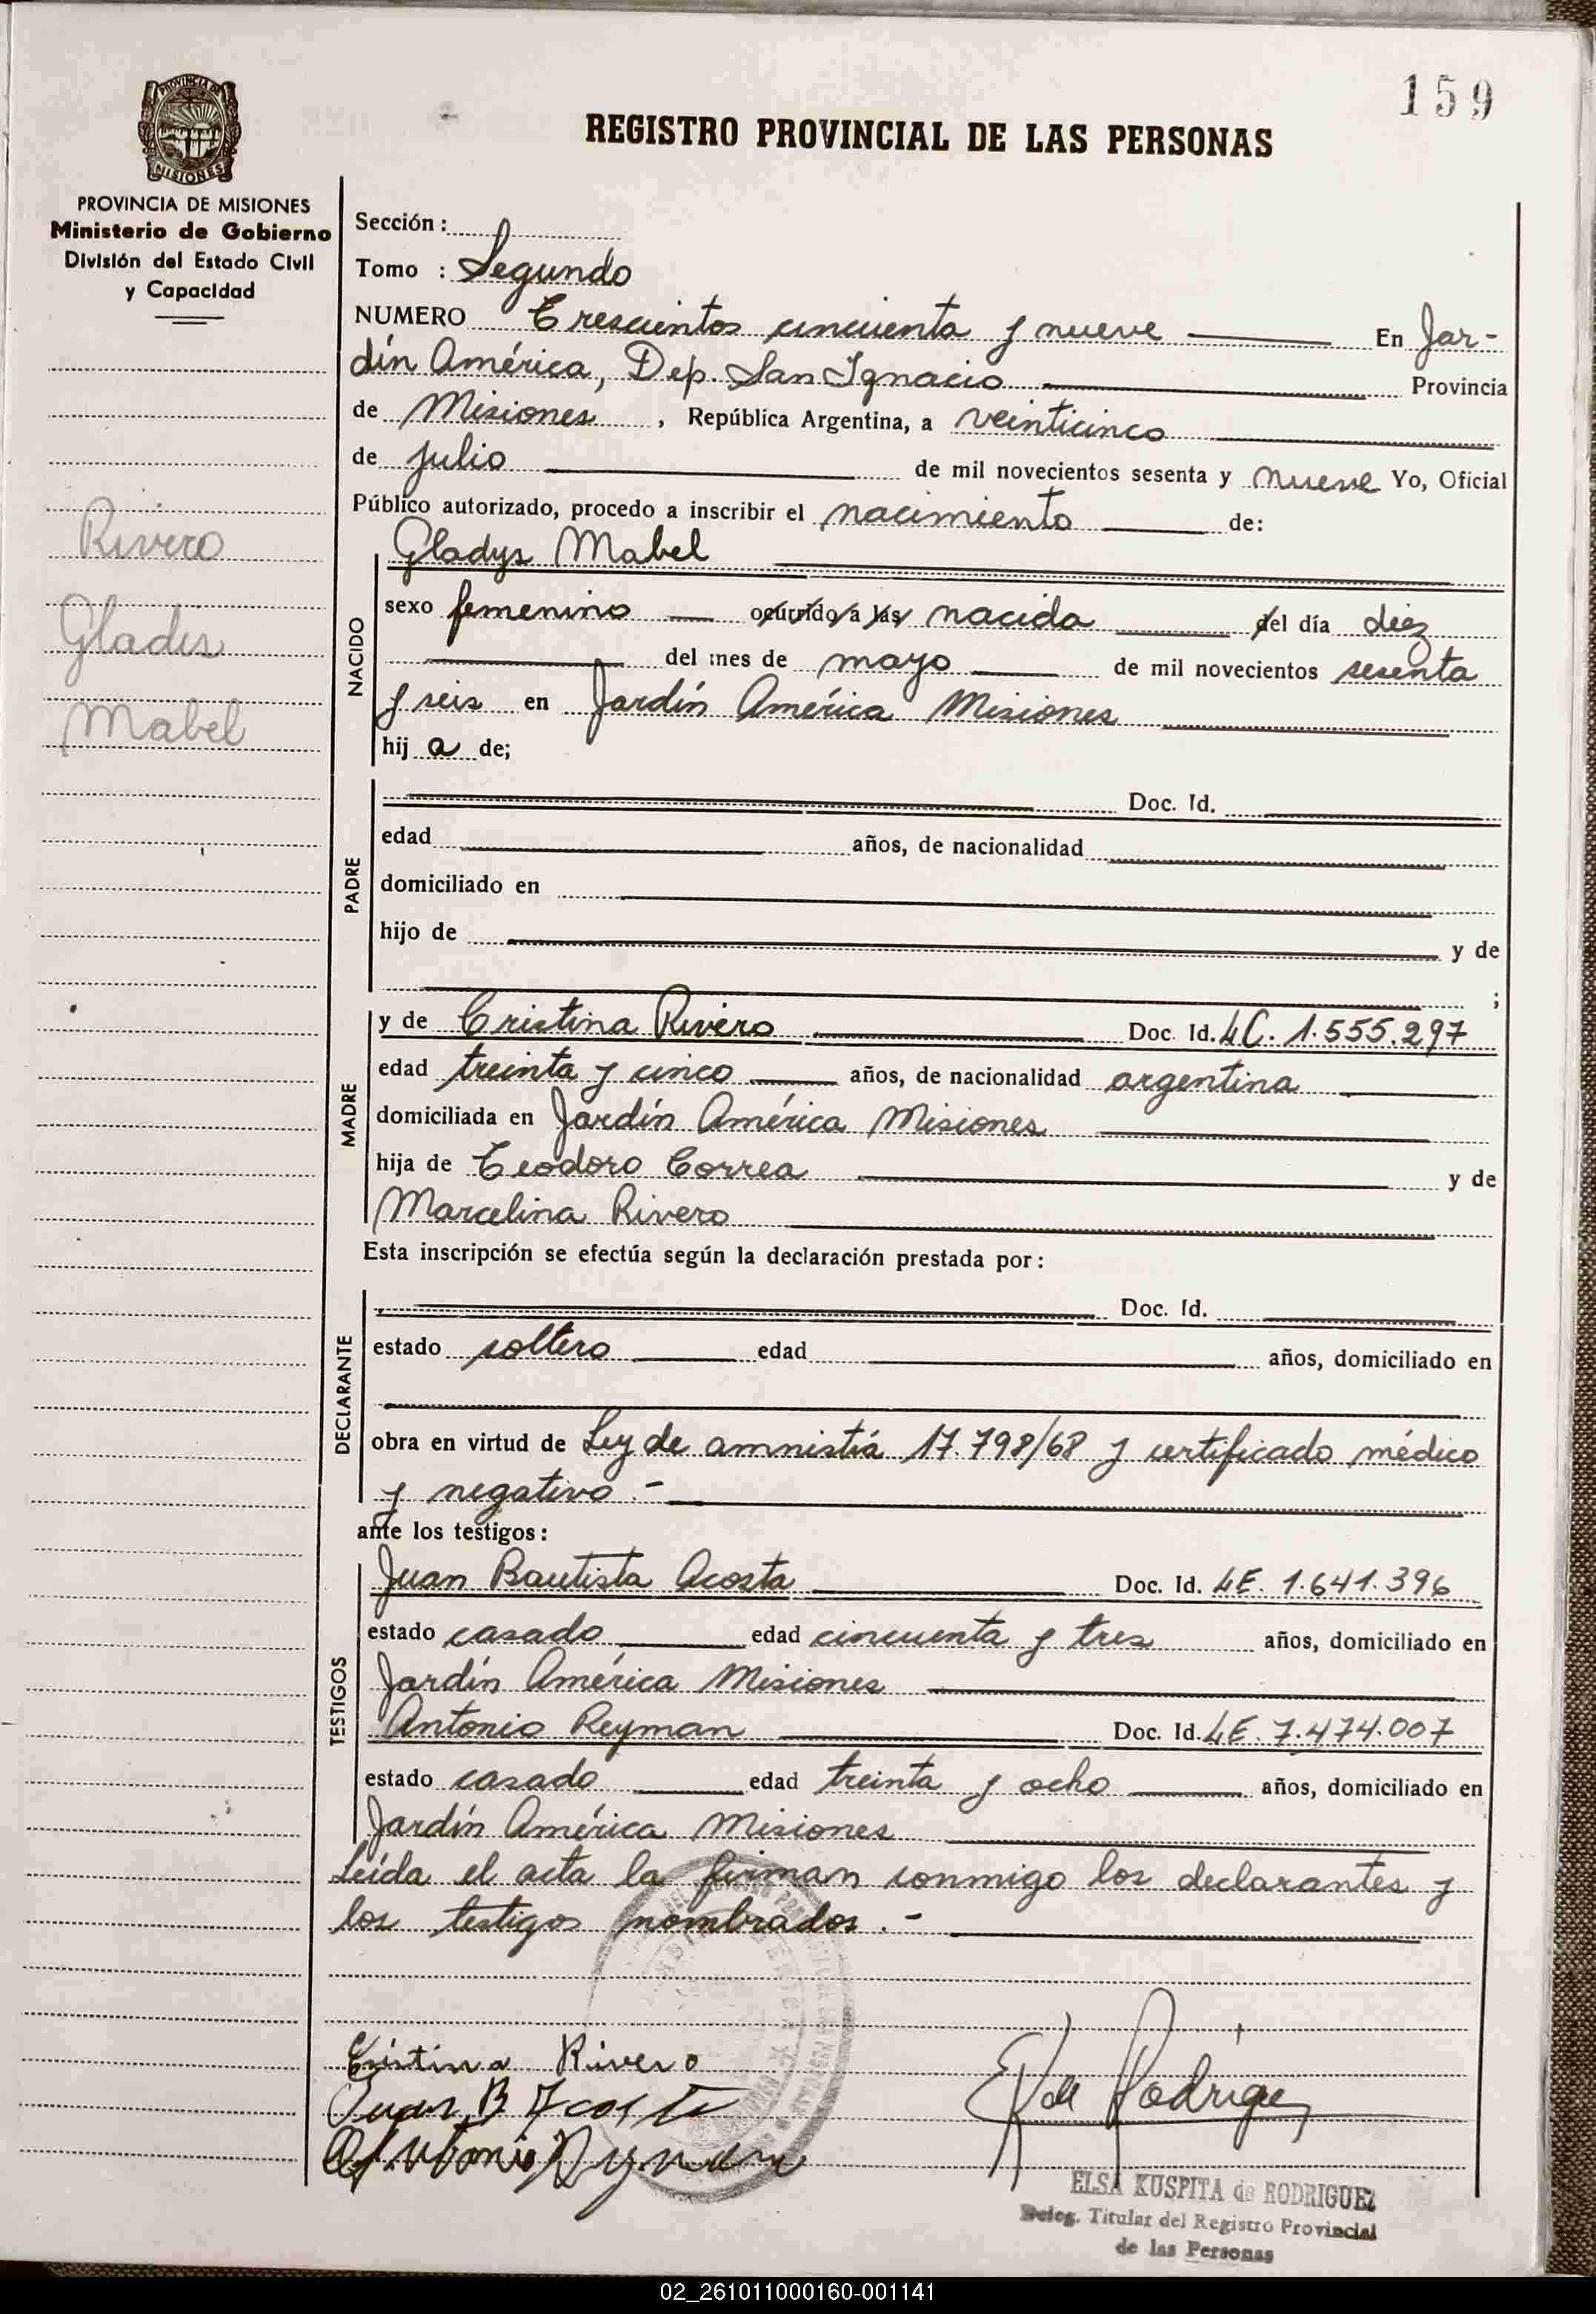 159
REGISTRO PROVINCIAL DE LAS PERSONAS
PROVINCIA DE MISIONES
Ministerio de Gobierno
División del Estado Civil
y Capacidad
Rivero
Gladis
Mabel
Sección:
Tomo : Segundo
NUMERO Trescientos cincuenta y nueve En Jar-
dín América, Dep. San Ignacio Provincia
de Misiones, República Argentina, a veinticinco
de julio de mil novecientos sesenta y nueve Yo, Oficial
Público autorizado, procedo a inscribir el nacimiento de:
Gladys Mabel
NACIDO
sexo femenino ocurrido a las nacida del día diez
del mes de mayo de mil novecientos sesenta
y seis en Jardín América Misiones
hij a de;
PADRE
Doc. Id.
edad años, de nacionalidad
domiciliado en
hijo de y de
;
MADRE
y de Cristina Rivero Doc. Id. LC. 1.555.297
edad treinta y cinco años, de nacionalidad argentina
domiciliada en Jardín América Misiones
hija de Teodoro Correa y de
Marcelina Rivero
Esta inscripción se efectúa según la declaración prestada por:
DECLARANTE
Doc. Id.
estado soltero edad años, domiciliado en
obra en virtud de Ley de amnistía 17.798/68 y certificado médico
y negativo.-
ante los testigos:
TESTIGOS
Juan Bautista Acosta Doc. Id. LE. 1.641.396
estado casado edad cincuenta y tres años, domiciliado en
Jardín América Misiones
Antonio Reyman Doc. Id. LE. 7.474.007
estado casado edad treinta y ocho años, domiciliado en
Jardín América Misiones
Leída el acta la firman conmigo los declarantes y
los testigos nombrados.-
Cristina Rivero
Juan B Acosta
Antonio Reyman
E K de Rodriguez
ELSA KUSPITA de RODRIGUEZ
Deleg. Titular del Registro Provincial
de las Personas
02_261011000160-001141